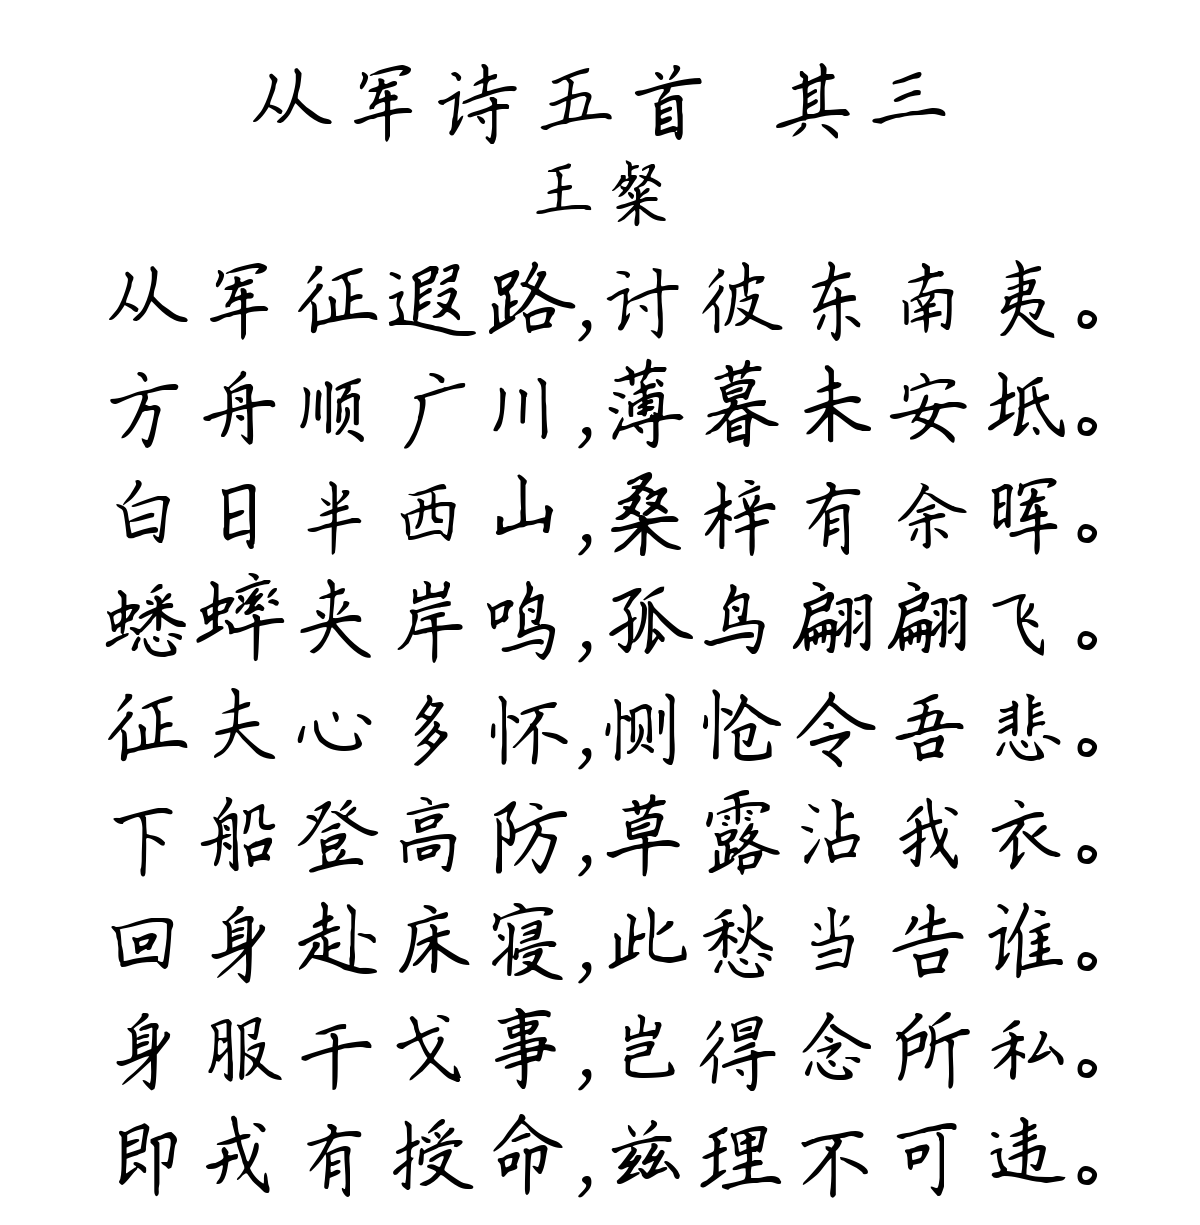 从军诗五首 其三
王粲
从军征遐路,讨彼东南夷。
方舟顺广川,薄暮未安坻。
白日半西山,桑梓有余晖。
蟋蟀夹岸鸣,孤鸟翩翩飞。
征夫心多怀,恻怆令吾悲。
下船登高防,草露沾我衣。
回身赴床寝,此愁当告谁。
身服干戈事,岂得念所私。
即戎有授命,兹理不可违。